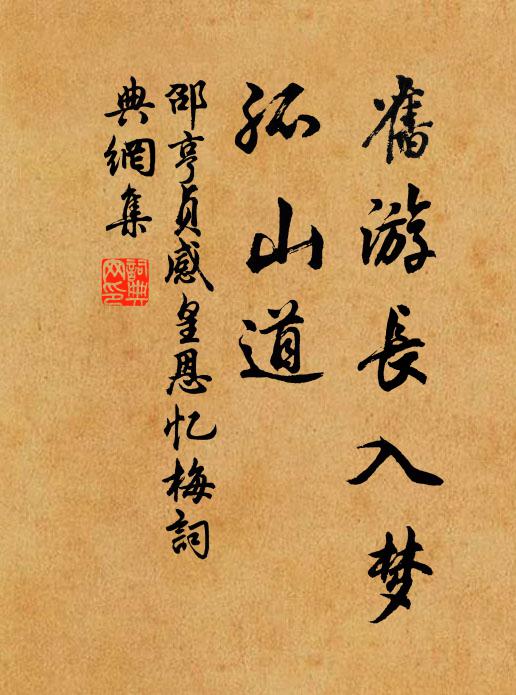 舊游長入梦
孤山道
邵亨貞感皇恩忆梅詞
典網集
詞典网印